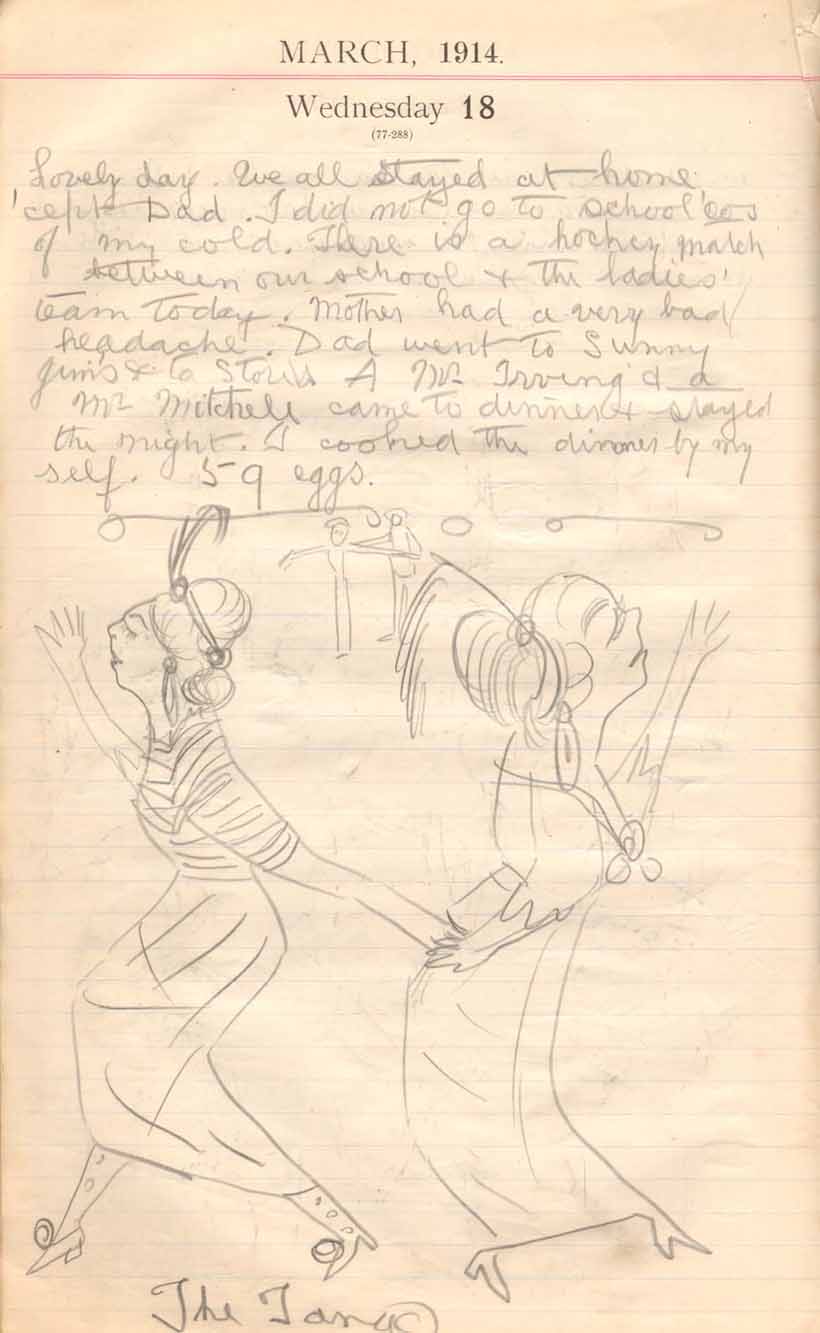 MARCH, 1914.
Wednesday 18
(77-288)
Lovely day. We all stayed at home
'cept Dad. I did not go to school 'cos
of my cold. There is a hockey match
between our school & the ladies'
team today. Mother had a very bad
headache. Dad went to Sunny
Jim's & to Stores A Mr Irving & a
Mr Mitchell came to dinner & stayed
the night. I cooked the dinner by my
self. 59 eggs.
The Tango